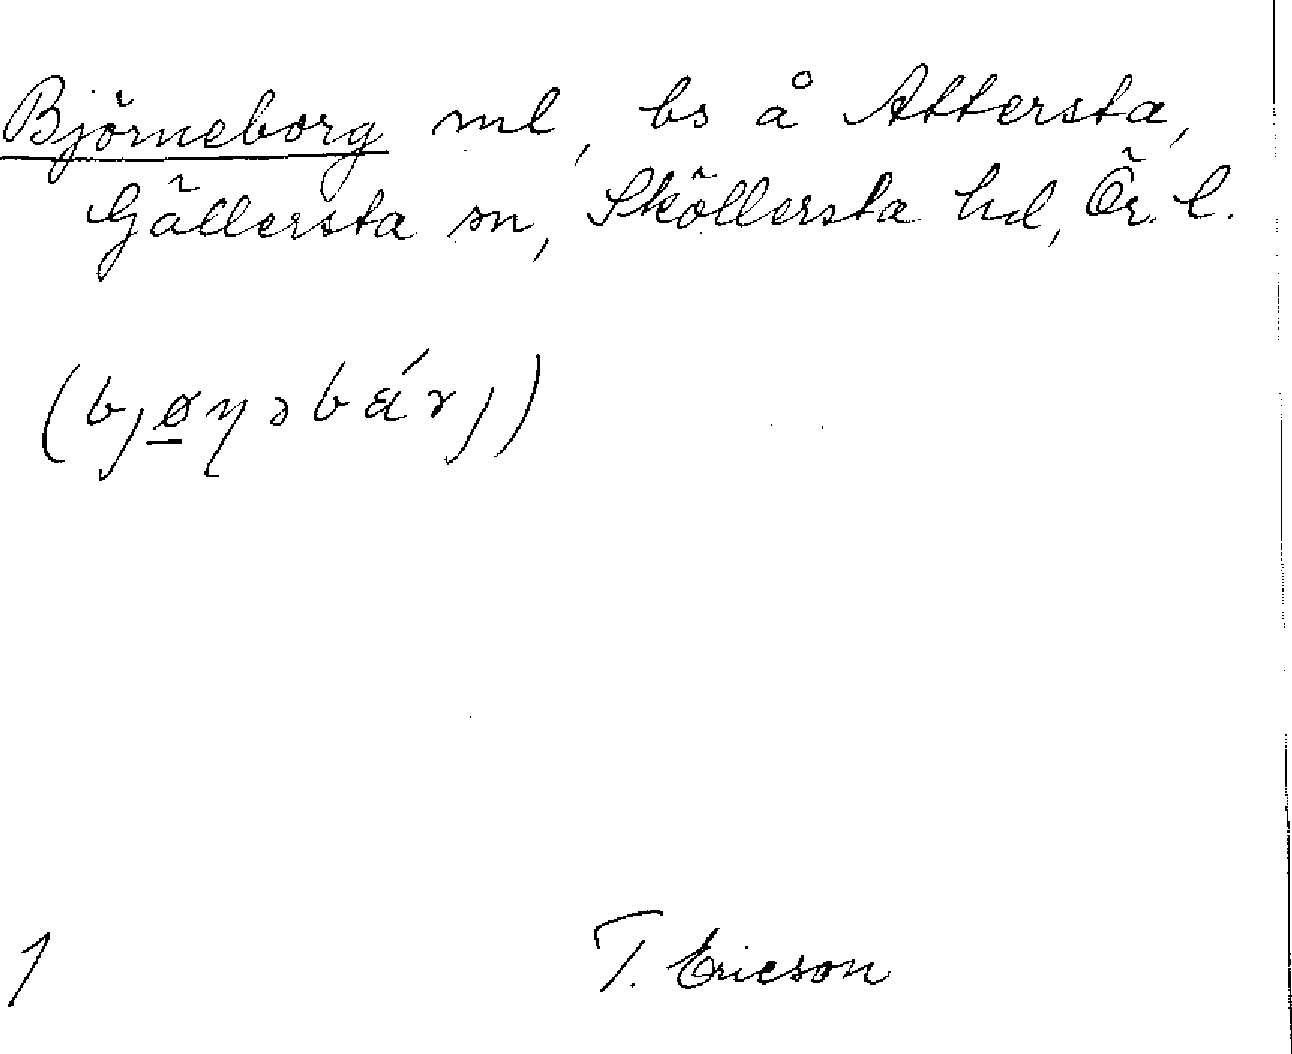 Björneborg ml, bs å Attersta,
Gällersta sn, Sköllersta hd, Ör. l.
(bjøꞃəbárj)
1
T. Ericson